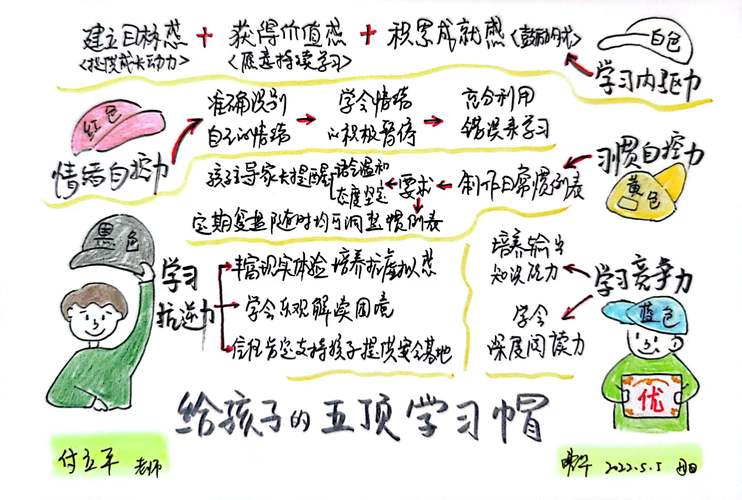 建立目标感 + 获得价值感 + 积累成就感<鼓励的术>
<提供成长动力> <愿意持续学习>
白色
学习内驱力
红色
情绪自控力
准确识别
自己的情绪
学会情绪
的积极暂停
充分利用
错误来学习
习惯自控力
黄色
制作日常惯例表
要求
语言温和
态度坚定
孩子主导家长提醒
定期复盘随时均可调整惯例表
黑色
学习
抗逆力
丰富现实体验 培养抗虚拟感
学会乐观解读困境
信任肯定支持孩子提供安全基地
学习竞争力
蓝色
培养输出
知识能力
学会
深度阅读力
优
给孩子的五顶学习帽
付立平 老师
2022.5.5